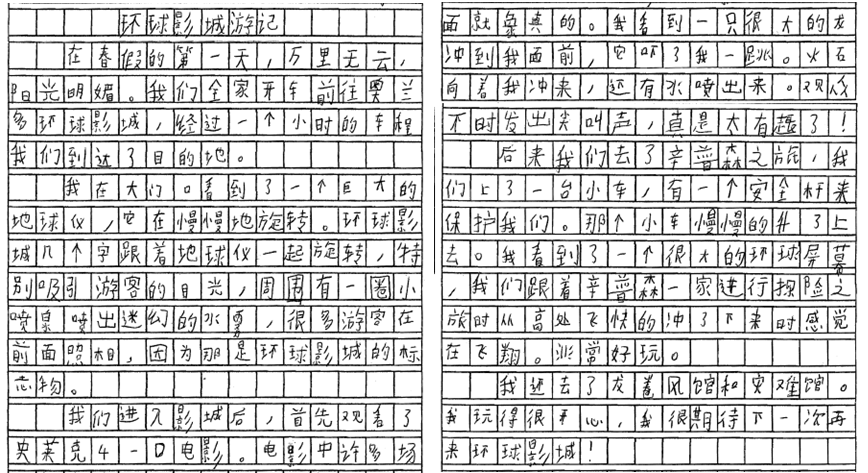 环球影城游记
在春假的第一天，万里无云，
阳光明媚。我们全家开车前往奥兰
多环球影城，经过一个小时的车程
我们到达了目的地。
我在大门口看到了一个巨大的
地球仪，它在慢慢地旋转。环球影
城几个字跟着地球仪一起旋转，特
别吸引游客的目光，周围有一圈小
喷泉喷出迷幻的水雾，很多游客在
前面照相，因为那是环球影城的标
志物。
我们进入影城后，首先观看了
史莱克4-D电影。电影中许多场
面就象真的。我看到一只很大的龙
冲到我面前，它吓了我一跳。火石
向着我冲来，还有水喷出来。观众
不时发出尖叫声，真是太有趣了！
后来我们去了辛普森之旅，我
们上了一台小车，有一个安全杆来
保护我们。那个小车慢慢的升了上
去。我看到了一个很大的环球屏幕
，我们跟着辛普森一家进行探险之
旅时从高处飞快的冲了下来时感觉
在飞翔。非常好玩。
我还去了龙卷风馆和灾难馆。
我玩得很开心，我很期待下一次再
来环球影城！